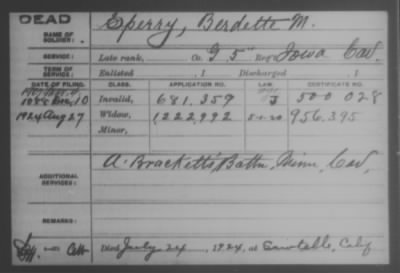 DEAD
NAME OF SOLDIER: Sperry, Berdette M.
SERVICE: Late rank, Co. G 5" Reg't Iowa Cav.
TERM OF SERVICE: Enlisted , 1 Discharged , 1
DATE OF FILING. CLASS. APPLICATION NO. LAW. CERTIFICATE NO.
1888 Dec, 10 Invalid, 681.359 3 500 028
1924 Aug 27 Widow, 1,222,992 5-1-20 956.395
Minor,
ADDITIONAL SERVICES: A. Brackett's Battn, Minn, Cav,
REMARKS:
Died July 24, 1924, at Sawtelle, Calif